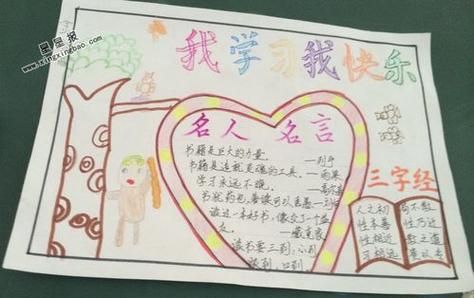 星星报
www.xingxingbao.com
我学习我快乐
名人 名言
书籍是巨大的力量。 —列宁
书籍是造就灵魂的工具。—雨果
学习永远不晚。 —高尔基
书犹药也，善读可以医愚—刘向
读过一本好书，像交了一个益
友。 —臧克家
读书要三到：心到
眼到、口到
三字经
人之初
性本善
性相近
习相远
苟不教
性乃迁
教之道
贵以专